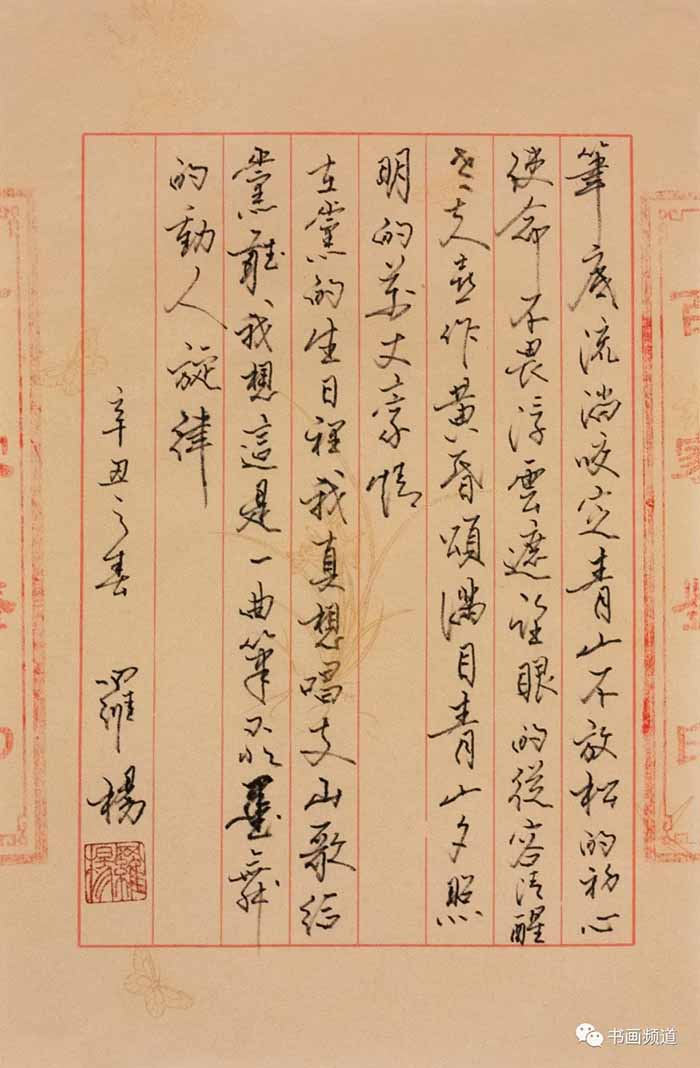 筆底流淌咬定青山不放松的初心
使命不畏浮雲遮望眼的從容清醒
老夫喜作黄昏頌滿目青山夕照
明的萬丈豪情
在黨的生日裡我真想唱支山歌給
黨聽我想這是一曲筆飛墨舞
的動人旋律
辛丑之春 羅楊
书画频道